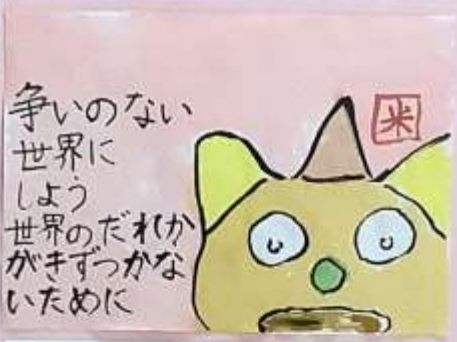 争いのない
世界に
しよう
世界のだれか
がきずつかな
いために
米